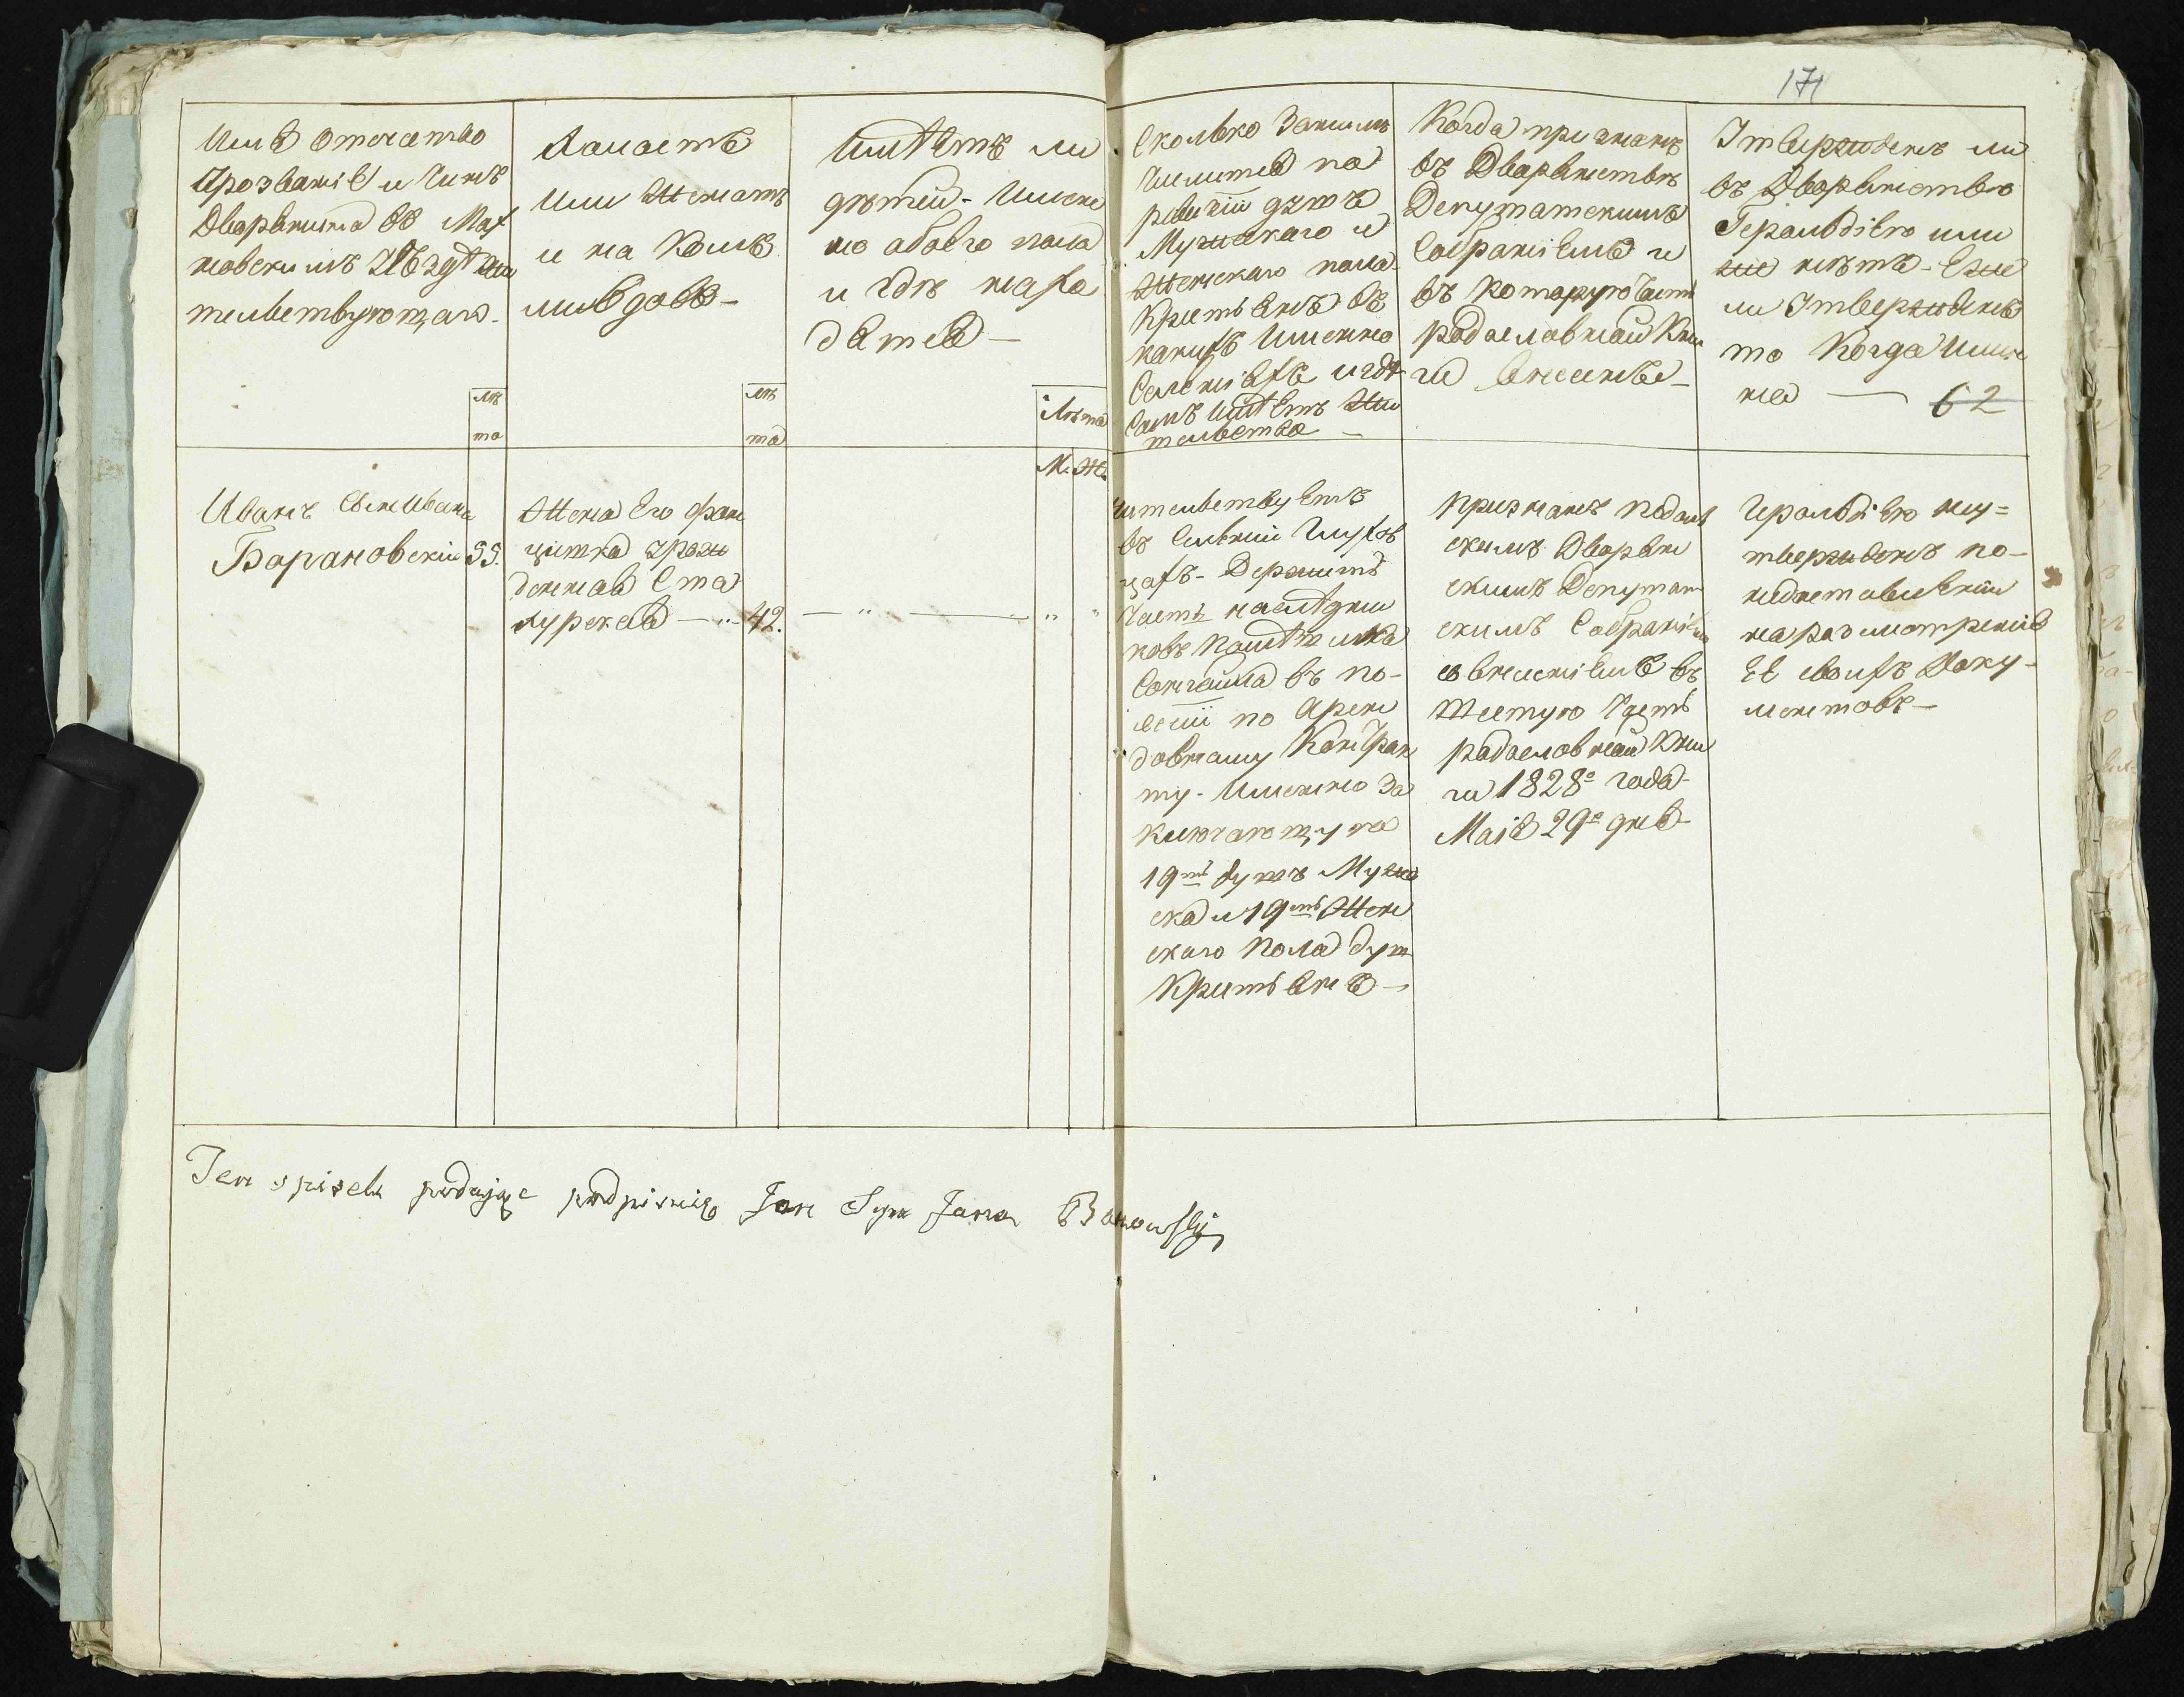 171
Имя Отечество
Прозваніе и Чинъ
Дворянина въ Мах
новскимъ Уѣздѣ жи
тельствующаго.
лѣ
та
Холостъ
или Женатъ
и на комъ
или вдовъ —
лѣ
та
Имѣетъ ли
дѣтей - Имен
но обоего пола
и гдѣ нахо
дятся —
Лѣта
М. Ж.
Сколько за нимъ
числится по
ревизіи душъ
Мужескаго и
Женскаго пола
Крестьянъ въ
какихъ Именно
Селеніяхъ и гдѣ
Самъ Имѣетъ Жи
тельство —
Когда признанъ
въ Дворянствѣ
Депутатскимъ
Собраніемъ и
въ которую Часть
родословной Кни
ги внесенъ —
Утвержденъ ли
въ Дворянство
Герольдіею или
же нѣтъ - Еже
ли Утвержденъ
то Когда Имян
но — 62
Иванъ Сынъ Ивана
Барановскій 55.
Жена Его Фран
цишка урож
денная Ста
хурская — 42.
— " — " "
жительствуетъ
въ Сельцѣ
Держитъ
Часть наслѣдни
ковъ
въ по-
сесіи по Арен
довному Контрак
ту - Именно За
ключающуюся
19ть душъ Муже
ска и 19ть Жен
скаго Пола душ
Крестьянъ —
Признанъ Подоль
скимъ Дворян
скимъ Депутат
скимъ Собраніемъ
со внесеніемъ въ
Шестую Часть
родословной Кни
ги 1828о года
Маія 29о дня
Герольдіею неу=
твержденъ по-
недоставленіи
на разсмотреніе
Ее своихъ Доку-
ментовъ —
Ten spisek podając podpisuię Jan Syn Jana Baranowskij